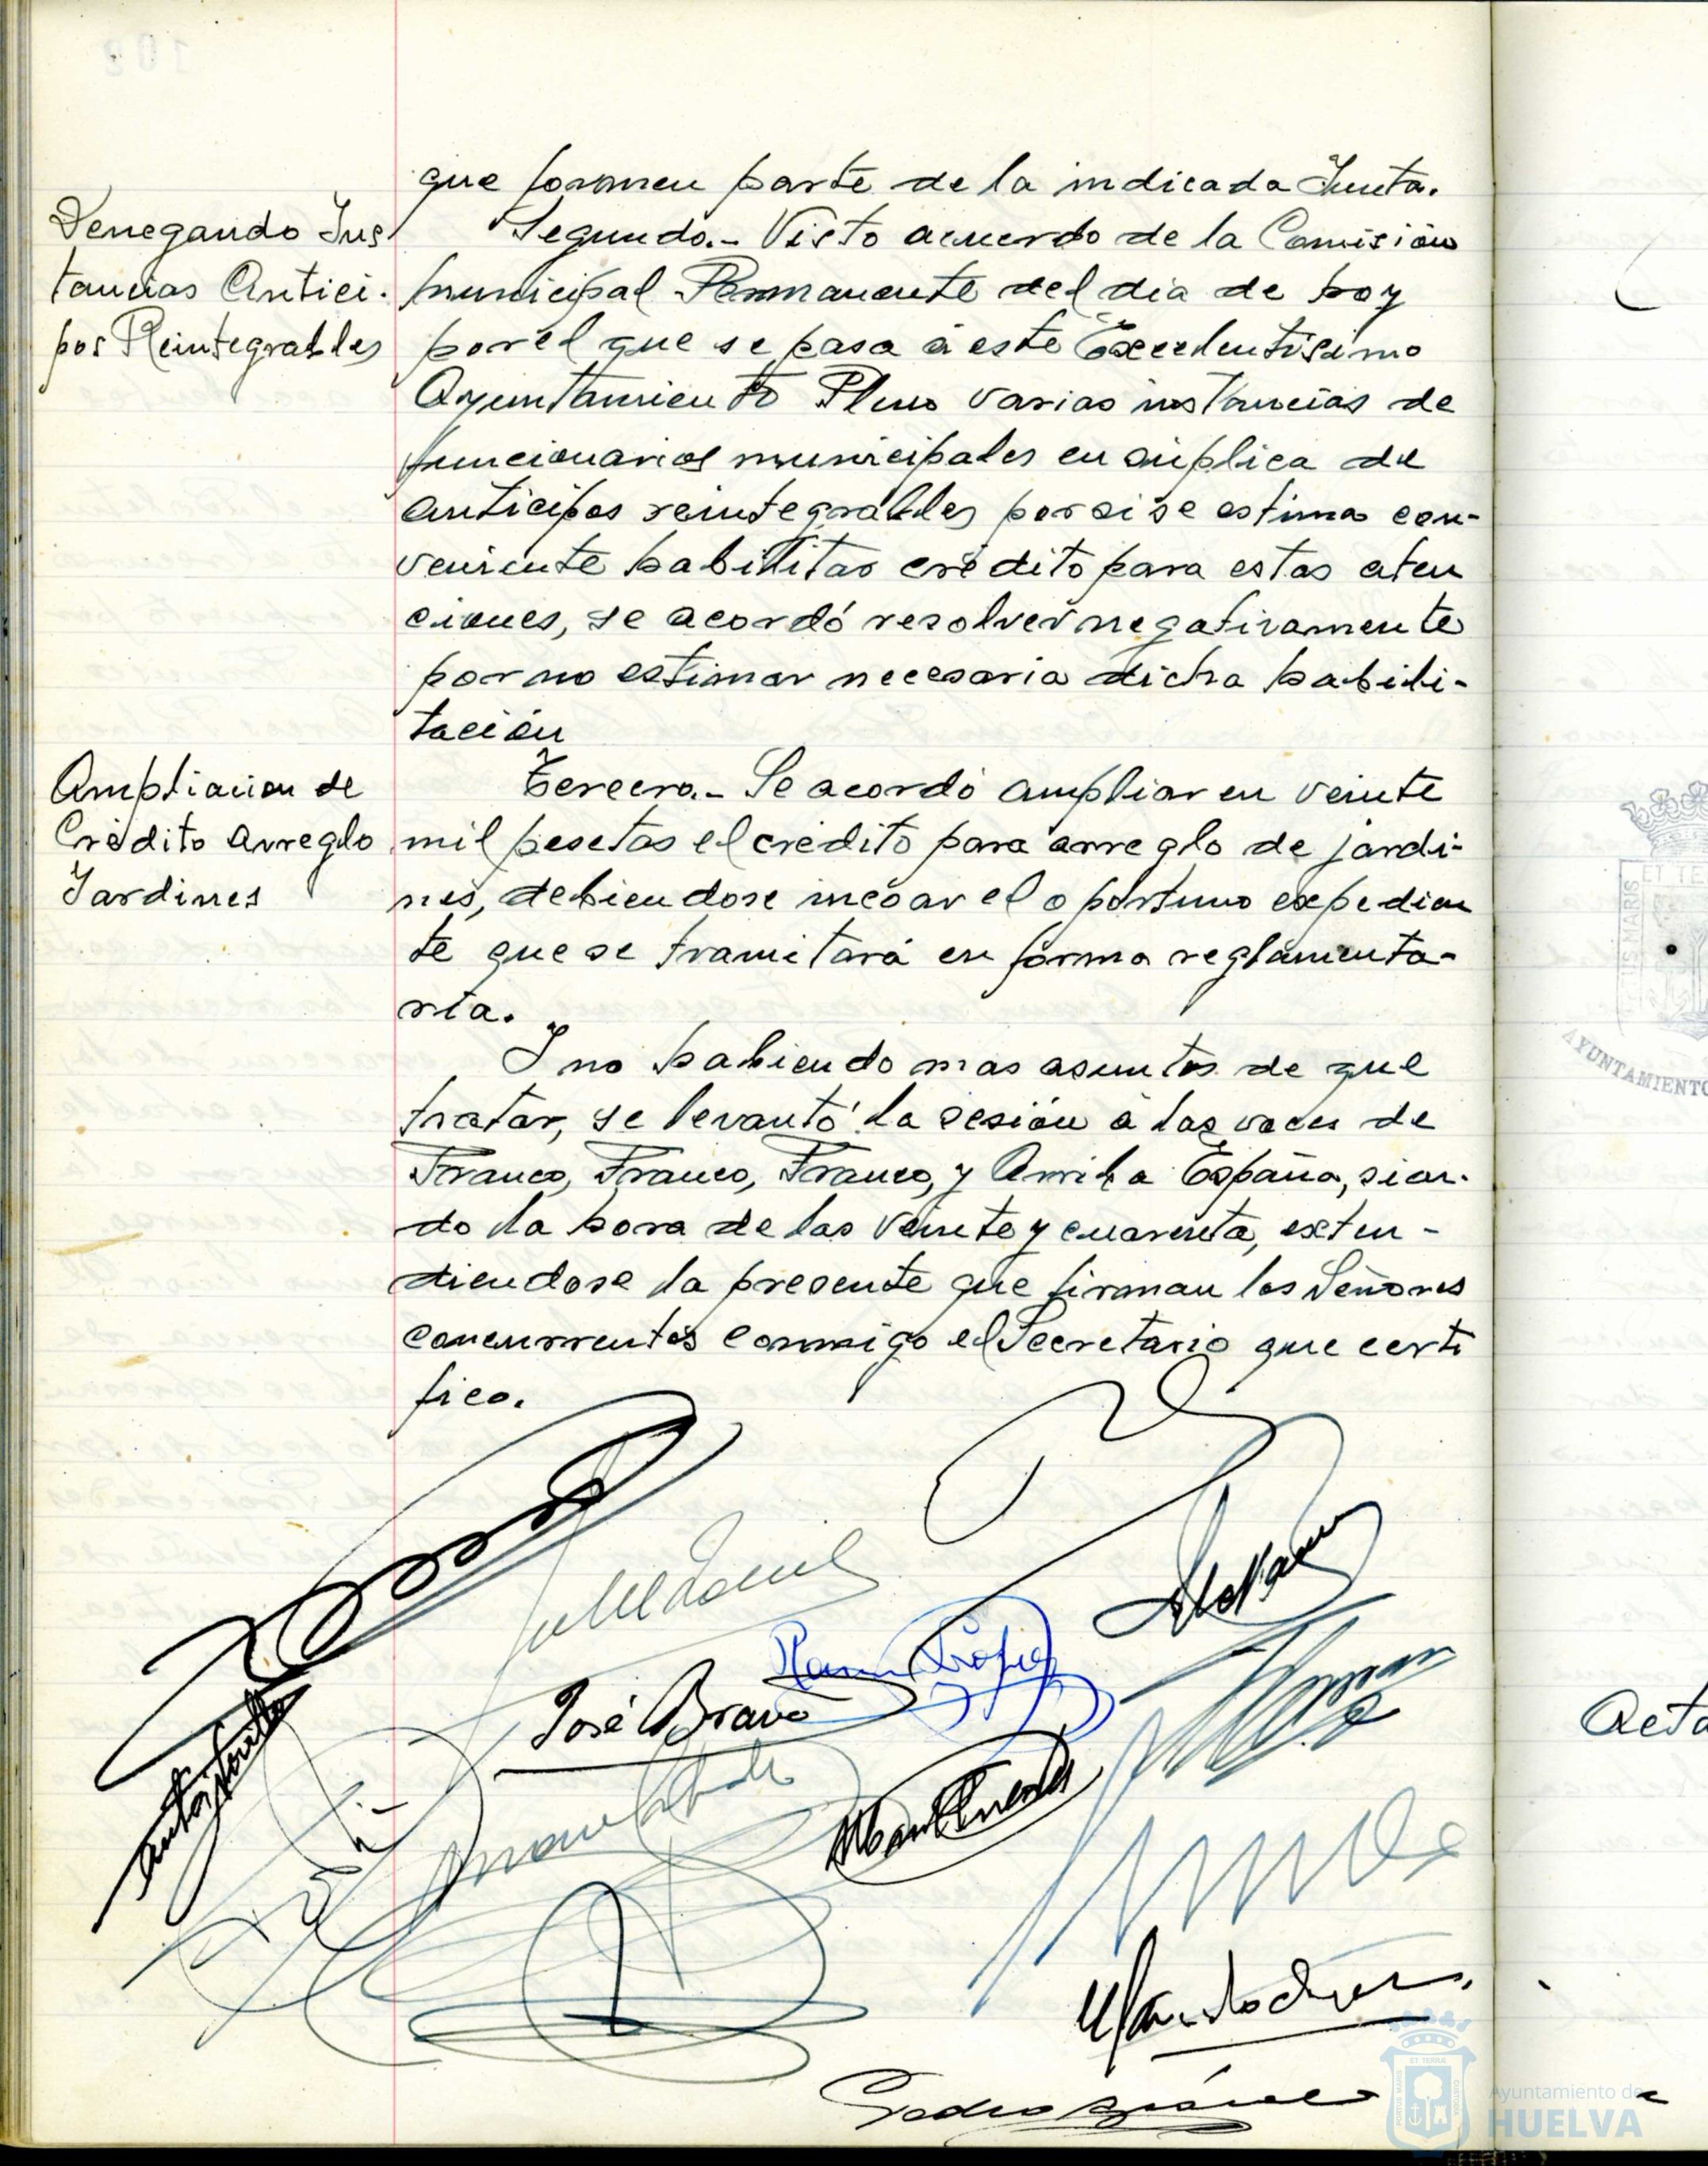 que formen parte de la indicada Junta.
Denegando Ins
tancias Antici-
pos Reintegrables
Segundo.- Visto acuerdo de la Comisión
municipal Permanente del dia de hoy
por el que se pasa á este Excelentisimo
Ayuntamiento Pleno varias instancias de
funcionarios municipales en súplica de
anticipos reintegrables por si se estima con-
veniente habilitar crédito para estas aten
ciones, se acordó resolver negativamente
por no estimar necesaria dicha habili-
tación
Ampliacion de
Crédito arreglo
Jardines
Tercero.- Se acordó ampliar en veinte
mil pesetas el crédito para arreglo de jardi-
nes, debiendose incoar el oportuno expedien
te que se tramitará en forma reglamenta-
ria.
I no habiendo mas asuntos de que
tratar, se levantó la sesión á las voces de
Franco, Franco, Franco, y Arriba España, sien-
do la hora de las veinte y cuarenta, exten-
diendose la presente que firman los Señores
concurrentes conmigo el Secretario que certi
fico.
José Bravo
Pedro
Acta
ET TE
AYUNTAMIENTO
Ayuntamiento de
HUELVA